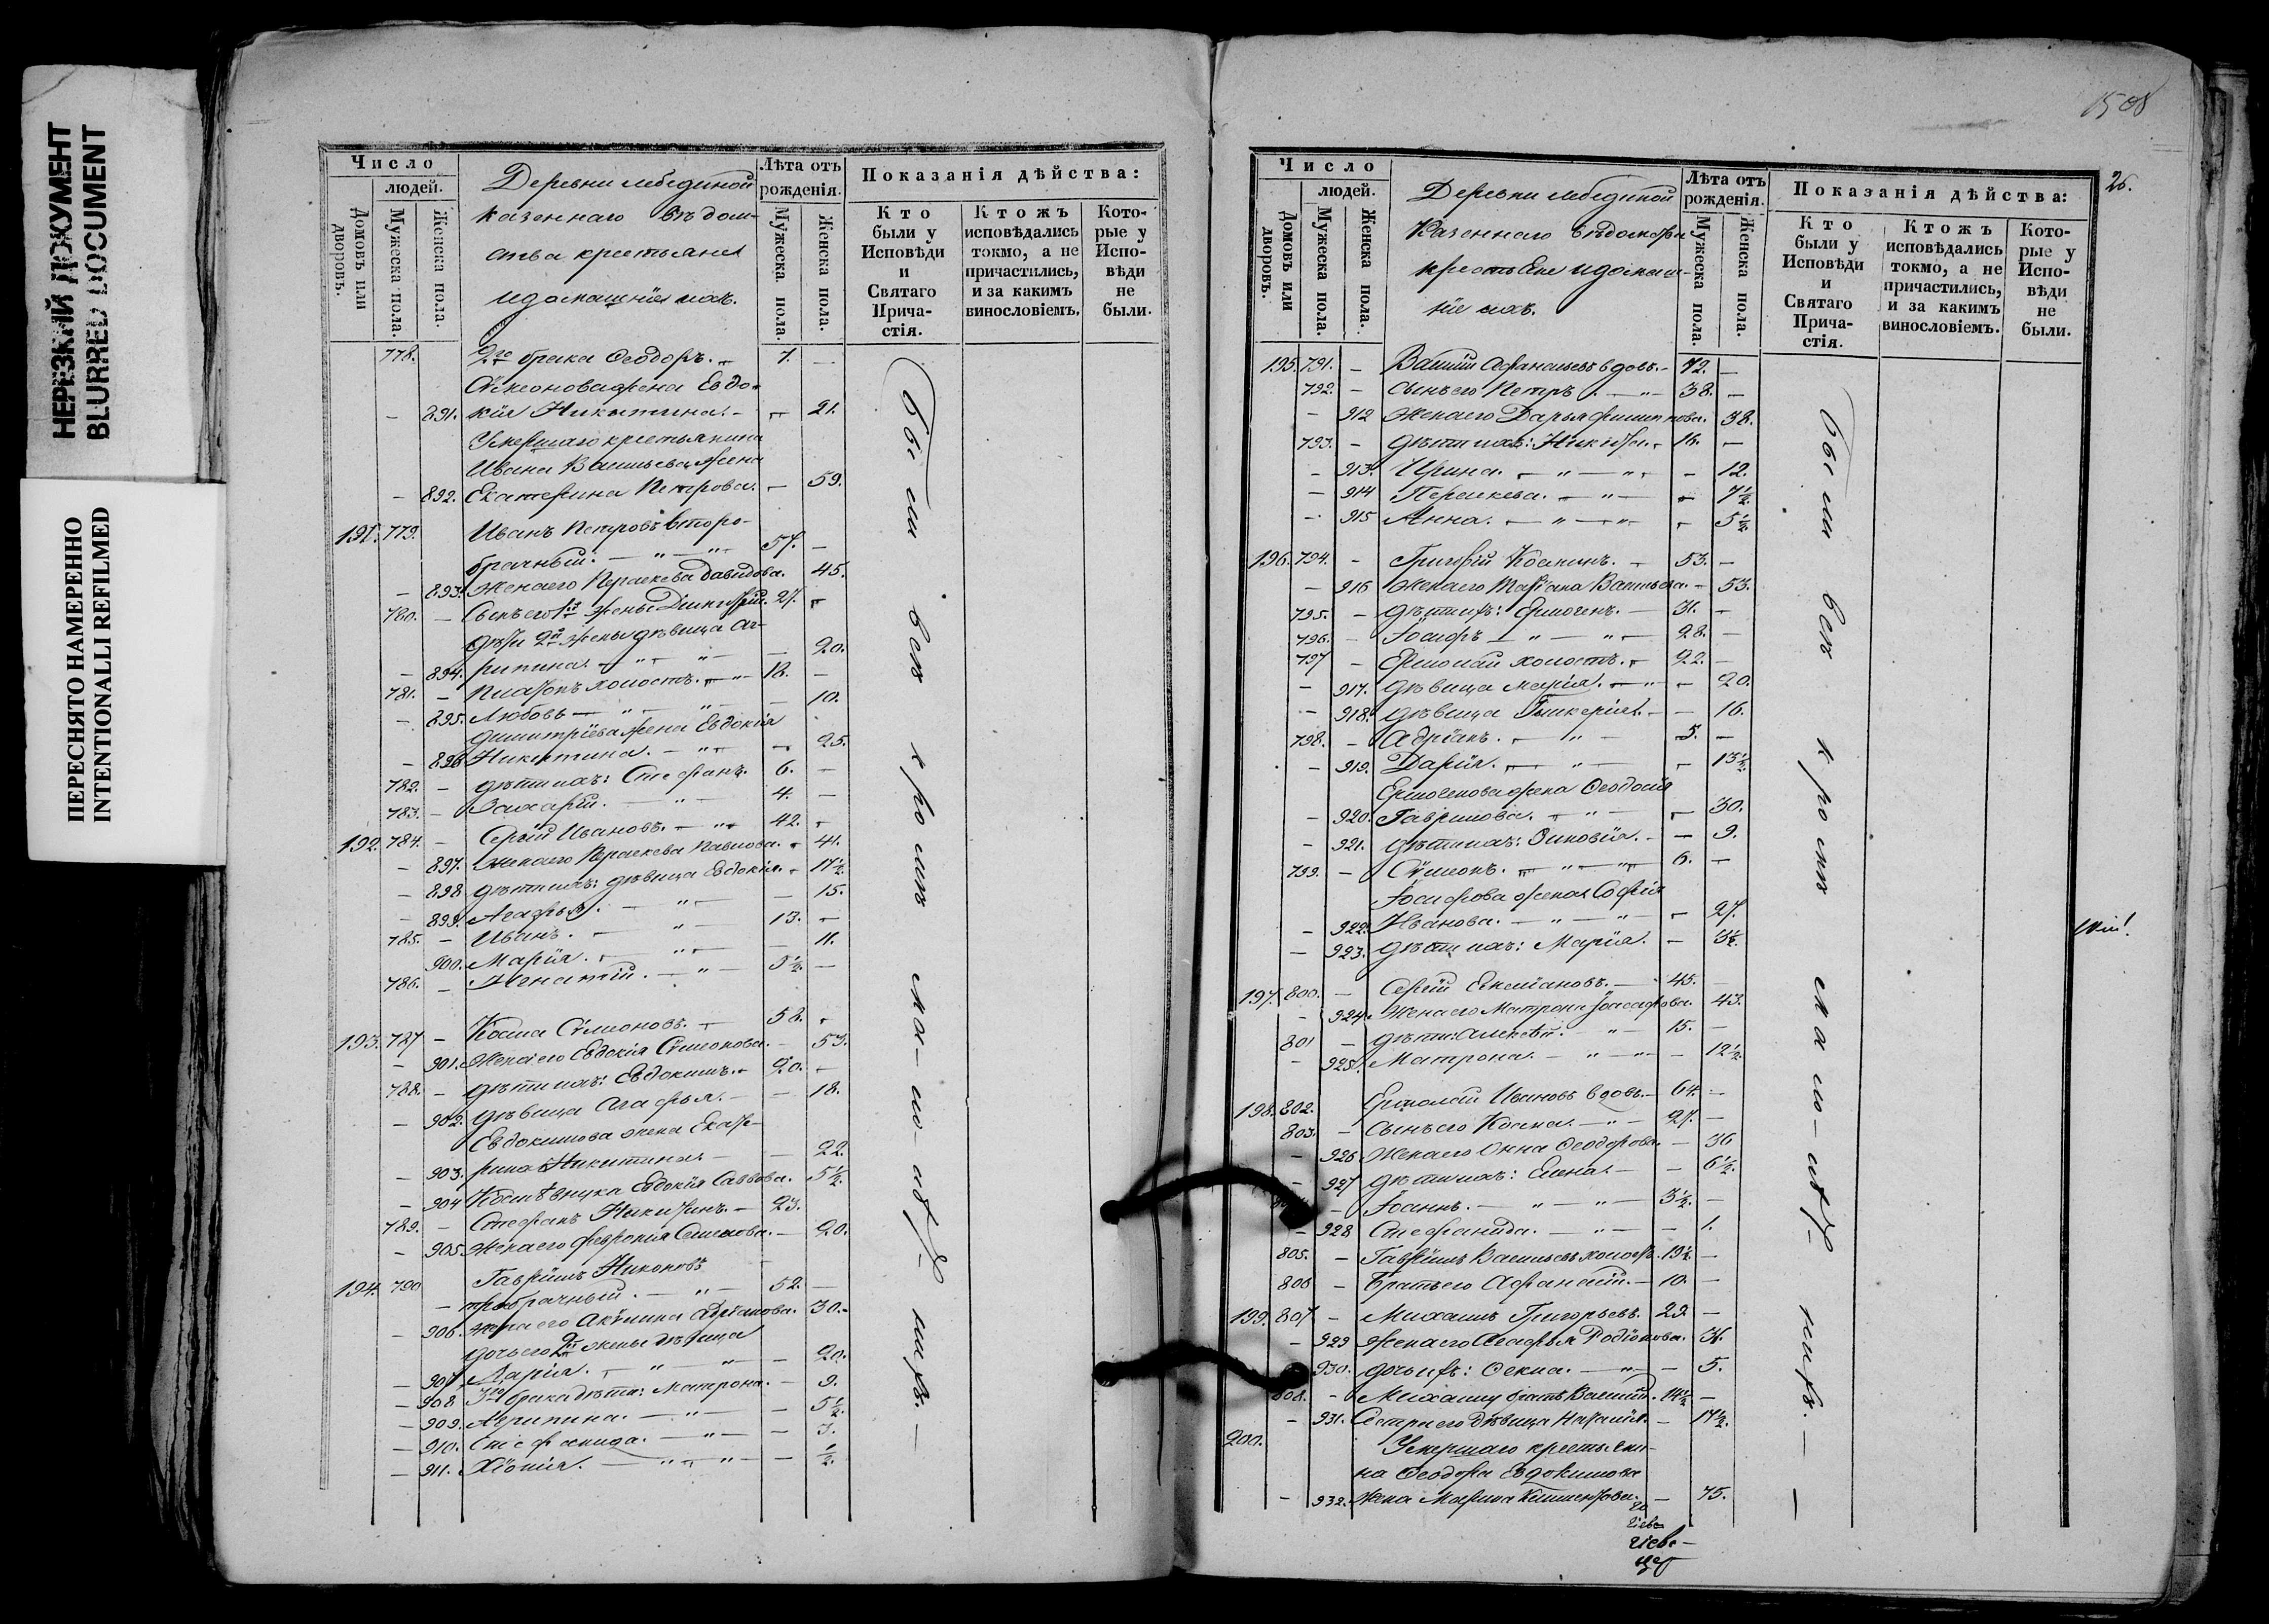 НЕРЕЗКИЙ ДОКУМЕНТ
BLURRED DOCUMENT
ПЕРЕСНЯТО НАМЕРЕННО
INTENTIONALLI REFILMED
Число
людей.
Домовъ или дворовъ.
Мужеска пола.
Женска пола.
Деревни лебединой
казеннаго вѣдом-
ства крестьяне
и домашнiе ихъ.
Лѣта отъ рожденiя.
Мужеска пола.
Женска пола.
Показанiя дѣйства:
Кто были у Исповѣди и Святаго Прича-стiя.
Ктожъ исповѣдались токмо, а не причастились, и за какимъ винословiемъ.
Кото-рые у Испо-вѣди не были.
778. 2го брака Ѳеодоръ. 7. —
Сѵмеонова жена Евдо-
— 891. кiя Никитина. — 21.
Умершаго крестьянина
Ивана Васильева жена
— 892. Екатерина Петрова. — 59.
191. 779. Иванъ Петровъ второ-
брачный. — " — " 57. —
— 893. Жена его Параскева Давидова. 45.
780. — Сынъ его 1й жены Димитрiй. 27. —
дѣти 2й жены дѣвица Аг-
— 894. рипина. — " — " — — 20.
781. — Платонъ холостъ. — " — 18. —
— 895. Любовь — " — " — 10.
Димитрiева жена Евдокiя
— 896. Никитина. — " — — 25.
782. — дѣти ихъ: Стефанъ. 6. —
783. — Захарiй. — " — 4. —
192. 784. — Сергiй Ивановъ. — " — 42. —
— 897. Жена его Параскева Павлова. — 41.
— 898 дѣти ихъ: дѣвица Евдокiя. — 17½.
— 899. Агафья. — " — — 15.
785. — Иванъ. — " — 13. —
900. Марiя. — " — — 11.
786. — Игнатiй. — " — 5½. —
193. 787 — Косма Сѵмеоновъ. — 58. —
— 901. Жена его Евдокiя Сѵмеонова. — 53.
788. — дѣти ихъ: Евдокимъ. — 20. —
— 902. дѣвица Агафья. — — 18.
Евдокимова жена Екате-
— 903. рина Никитина. — — 22.
— 904 Космѣ внука Евдокiя Саввова. 5½.
789. — Стефанъ Никитинъ. — 23.
— 905. Жена его Феврония Семенова. — 20.
194. 790 Гаврiилъ Никоновъ
— третьебрачный. — " — 52. —
— 906. Жена его Акилина Адрiанова. 30. —
дочь его 2й жены дѣвица
— 907. Дарiя. — " — " — — 20.
— 908 3го брака дѣти: Матрона. — 9.
— 909. Агрипина. — " — — 5½.
— 910. Стефанида. — " — — 3.
— 911. Хiонiя. — " — " — — ½.
Были всѣ кромѣ мало-лѣт-нихъ. —
1508
26.
Число
людей.
Домовъ или дворовъ.
Мужеска пола.
Женска пола.
Деревни лебединой
Казеннаго вѣдомства
крестьяне и домаш-
нiе ихъ.
Лѣта отъ рожденiя.
Мужеска пола.
Женска пола.
Показанiя дѣйства:
Кто были у Исповѣди и Святаго Прича-стiя.
Ктожъ исповѣдались токмо, а не причастились, и за какимъ винословiемъ.
Кото-рые у Испо-вѣди не были.
195. 791. — Василiй Афанасьевъ вдовъ. — 72. —
792. — Сынъ его Петръ. — " — 38. —
— 912 Жена его Дарья Филиппова. 38.
793. — дѣти ихъ: Никита. — 16. —
— 913. Ирина. — " — " — — 12.
— 914 Параскева. — " — — 7½.
— 915 Анна. — " — " — — 5½.
196. 794. — Григорiй Косминъ. — 53. —
— 916 Жена его Марiана Васильева. — 53.
795. — дѣти ихъ: Ермогенъ. — 31. —
796. — Iосифъ — " — " — 28. —
797 — Ермолай холостъ. — 22. —
— 917. дѣвица Марiя. — " — — 20.
— 918. дѣвица Гликерiя. — — 16.
798. — Адрiанъ. — " — 5. —
— 919. Дарiя. — " — — 13½.
Ермогенова жена Ѳеодосiя
— 920. Гаврилова. — " — — 30.
— 921. дѣти ихъ: Зиновiя. — — 9.
799. — Сѵмеонъ. — " — " — 6. —
Iосифова жена Софiя
— 922. Иванова. — " — " — — 27.
— 923. дѣти ихъ: Марiя. — 3½.
197. 800. — Сергiй Емелiановъ. — 45. —
— 924. Жена его Матрона Iоасафова. 43.
801 — дѣти: Алексѣй. " — 15. —
— 925. Матрона. — " — " — — 12½.
198. 802. Ермолай Ивановъ вдовъ. — 64. —
803. — Сынъ его Косма. — " — 27. —
— 926 Жена его Анна Ѳеодорова. — 36
— 927 дѣти ихъ: Елена. — — 6½.
— Iоаннъ. — " — " — 3½. —
— 928 Стефанида. — " — — 1.
805. — Гаврiилъ Васильевъ холостъ. 19½. —
806 — Братъ его Афанасiй. — 10. —
199. 807 — Михаилъ Григорьевъ. 29. —
— 929 Жена его Агафья Родiонова. 31.
930. дочь ихъ: Ѳекла. — " — — 5.
808. — Михаилу братъ Василiй. 14½. —
— 931. Сестра его дѣвица Наталiя. — 17½.
200. Умершаго крестьяни-
на Ѳеодора Евдокимова
— 932. Жена Марина Климентова. — 75.
Были всѣ кромѣ мало-лѣт-нихъ. —